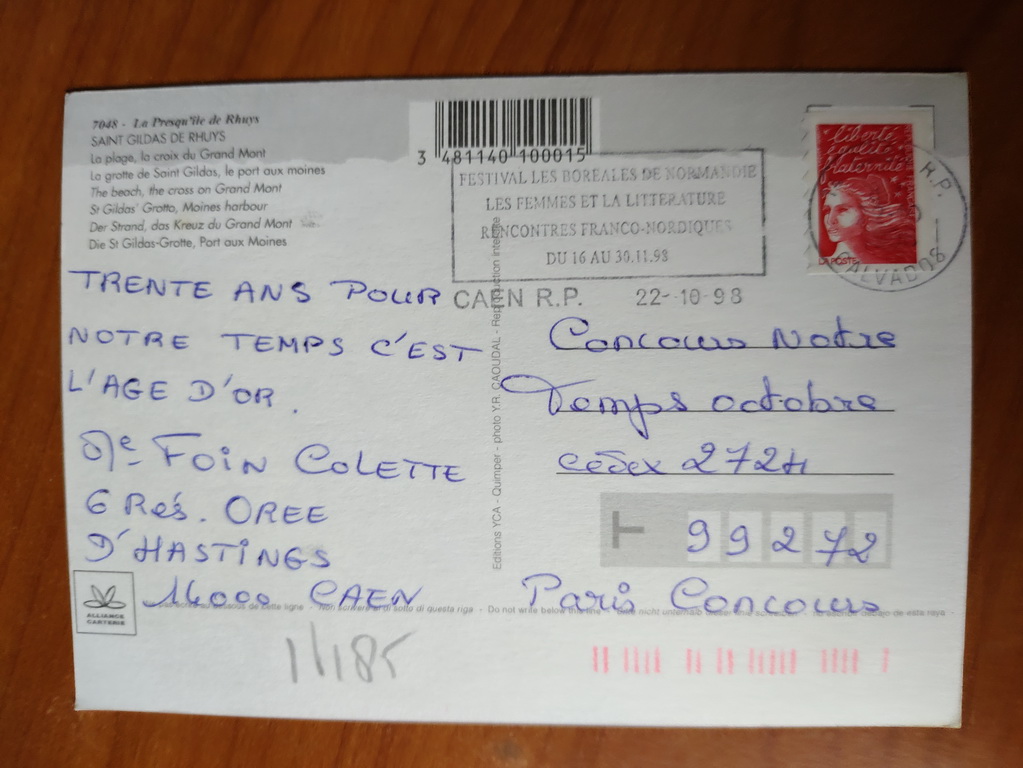 7048 - La Presqu'île de Rhuys
SAINT GILDAS DE RHUYS
La plage, la croix du Grand Mont
La grotte de Saint Gildas, le port aux moines
The beach, the cross on Grand Mont
St Gildas' Grotto, Moines harbour
Der Strand, das Kreuz du Grand Mont
Die St Gildas-Grotte, Port aux Moines
3 481140 100015
FESTIVAL LES BOREALES DE NORMANDIE
LES FEMMES ET LA LITTERATURE
RENCONTRES FRANCO-NORDIQUES
DU 16 AU 30.11.98
CAEN R.P. 22-10-98
liberté
égalité
fraternité
LA POSTE
R.P.
CALVADOS
TRENTE ANS POUR
NOTRE TEMPS C'EST
L'AGE D'OR.
Me FOIN COLETTE
6 Rés. OREE
D'HASTINGS
14000 CAEN
Editions YCA - Quimper - photo Y.R. CAOUDAL - Reproduction interdite
Concours Notre
Temps octobre
cédex 2724
T 99272
Paris Concours
ALLIANCE
CARTERIE
de cette ligne - Non scrivere al di sotto di questa riga - Do not write below this line - nicht unterhalb dieser de esta raya -